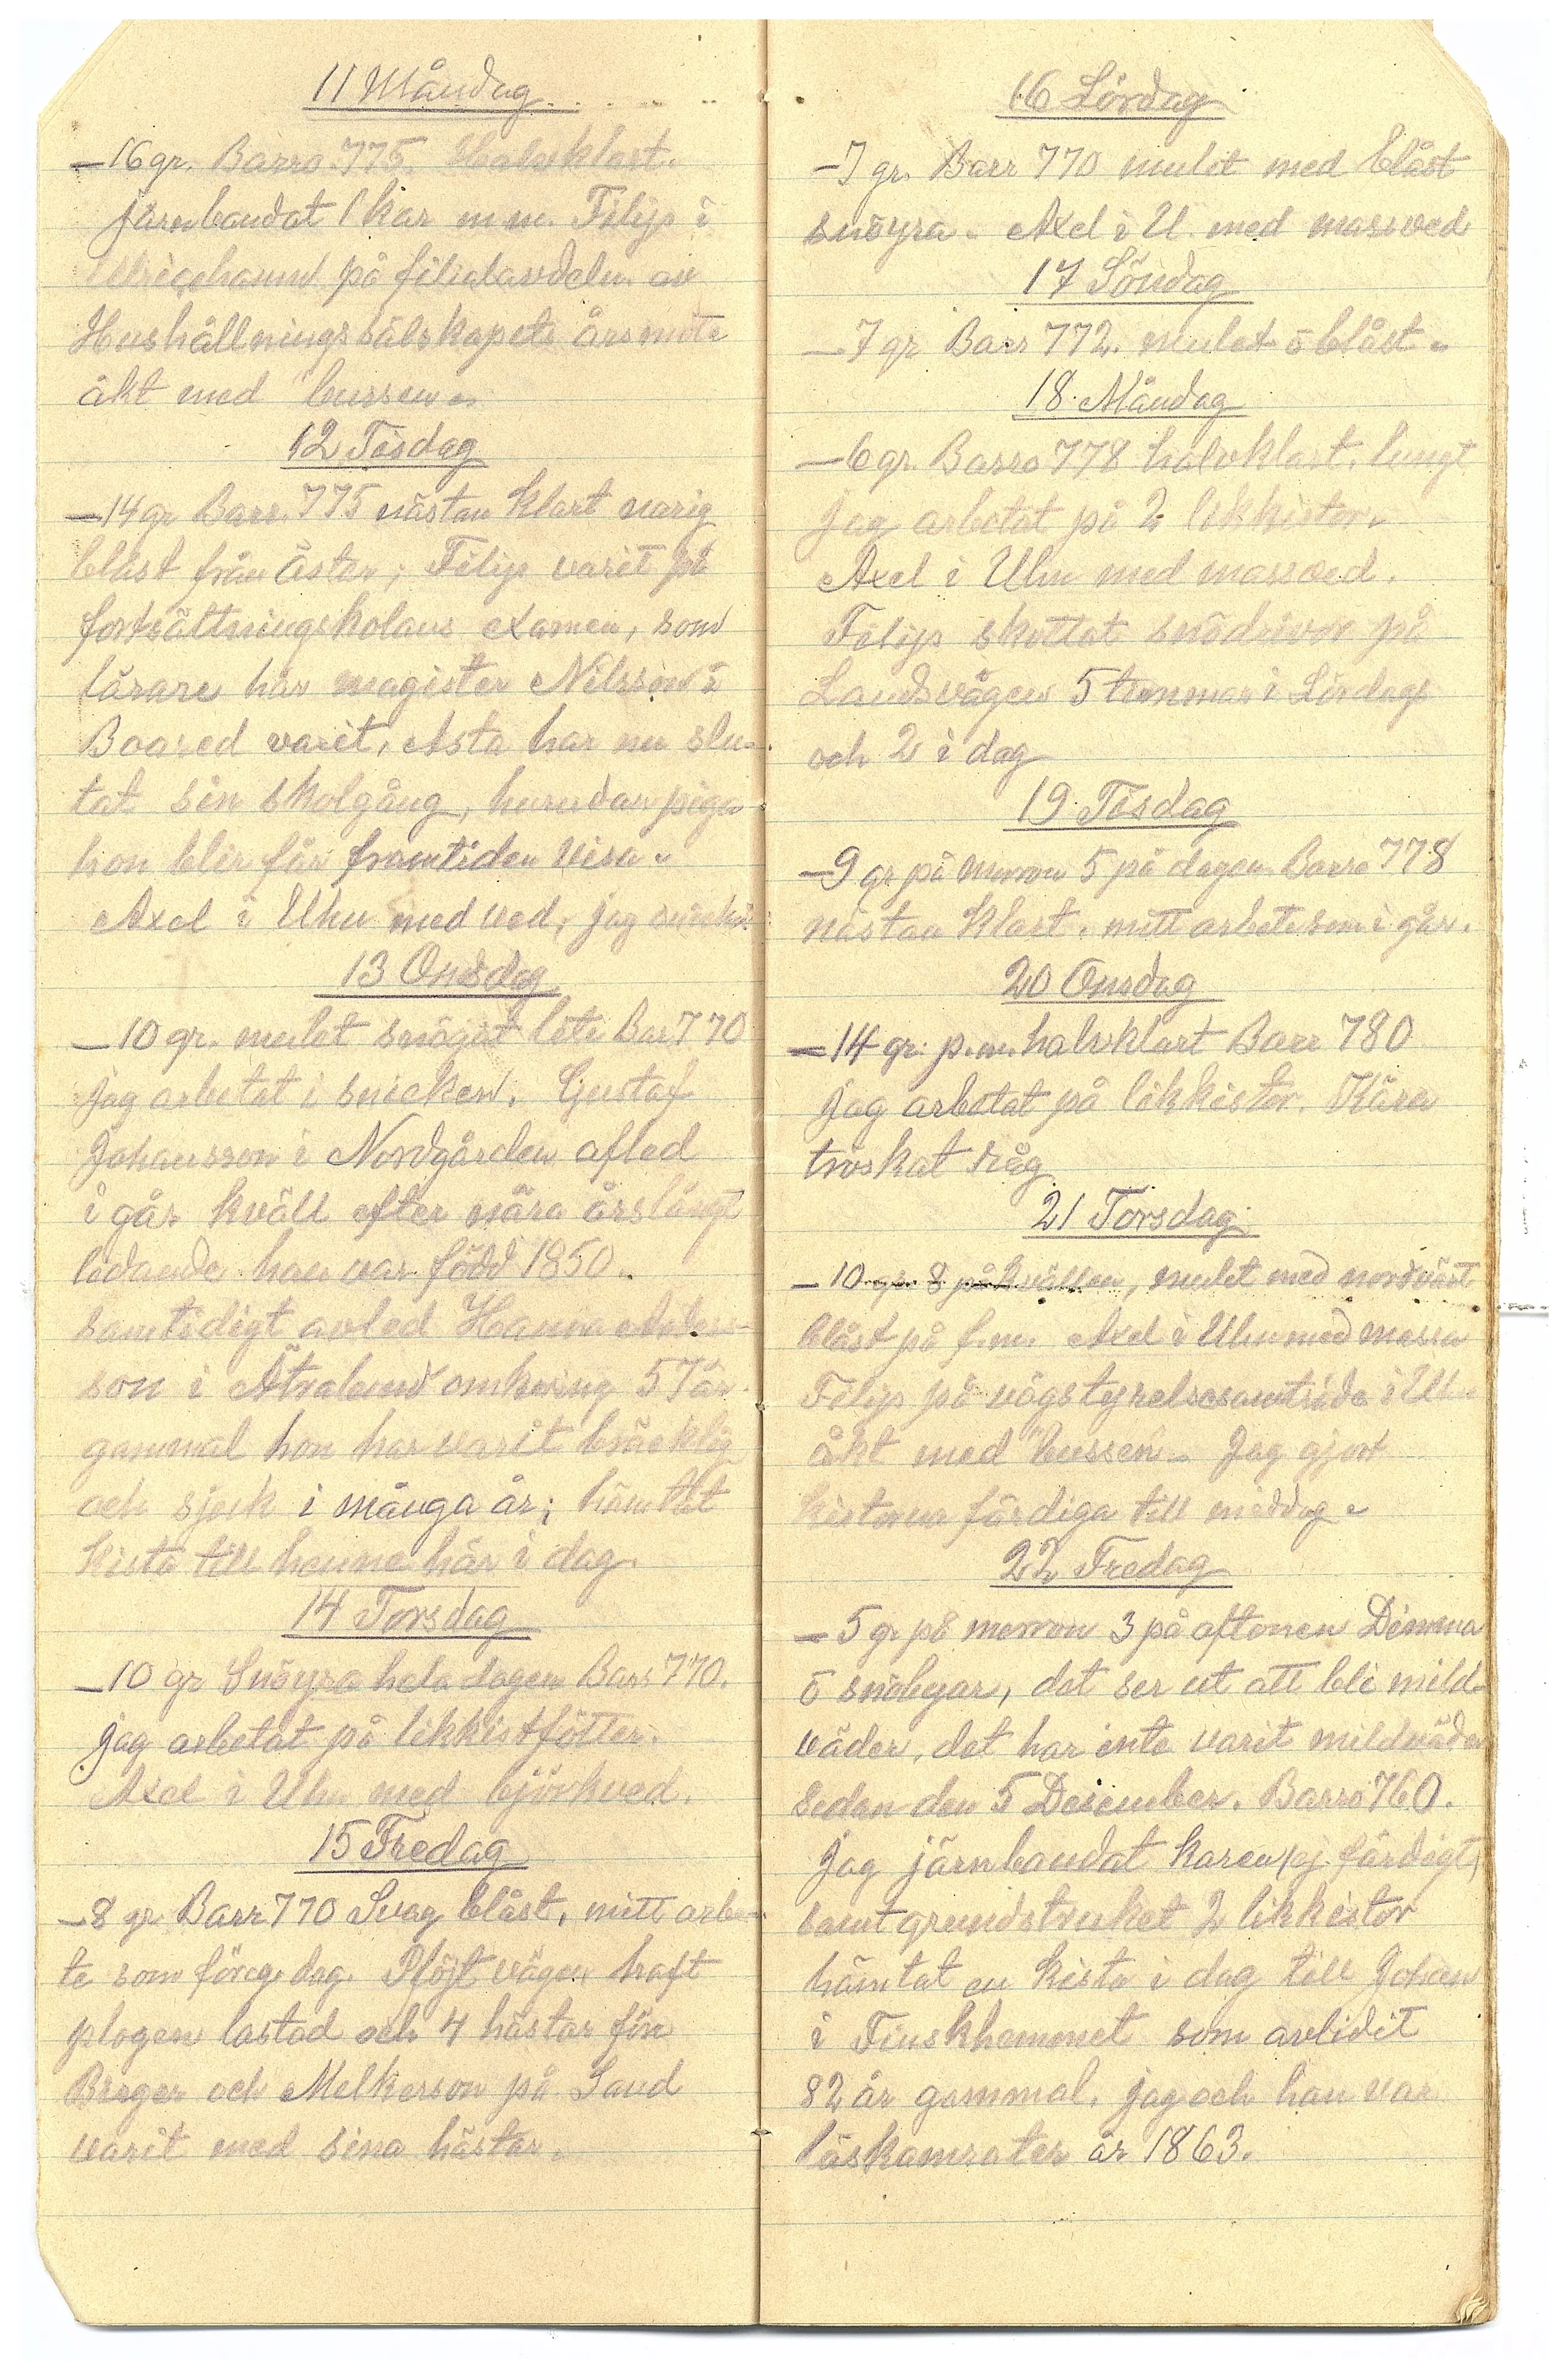 11 Måndag
–16 gr. Barro 775. Halvklart.
järnbandat 1 kar m m. Filip i
Ulricehamn på filialavdeln. av
Hushållningssälskapets årsmöte
åkt med bussen.
12 Tisdag
–14 gr Barr. 775 nästan klart narig
blåst från öster; Filip varit på
fortsättningskolans examen, som
lärare här magister Nilsson i
Boared varit. Asta har nu slu-
tat sin skolgång, hurudan piga
hon blir får framtiden visa.
Axel i Uhn med ved, jag
13 Onsdag
–10 gr. mulet snögat lite Bar 770
jag arbetat i snicken. Gustaf
Johansson i Nordgården afled
i går kväll efter nära årslångt
lidande han var född 1850.
samtidigt avled Hanna Anders-
son i Ätralund omkring 57 år
gammal hon har varit bräcklig
och sjuk i många år; hämtat
kista till henne här i dag.
14 Torsdag
–10 gr Snöyra hela dagen Barr 770.
jag arbetat på likkistfötter.
Axel i Uhn med björkved.
15 Fredag
–8 gr Barr 770 Svag blåst, mitt arbe-
te som föreg. dag. Plöjt vägen haft
plogen lastad och 4 hästar för
Birger och Melkerson på Sand
varit med sina hästar.
16 Lördag
–7 gr. Barr 770 mulet med blåst
snöyra. Axel i U. med massved
17 Söndag
–7 gr Barr 772. mulet o blåst.
18 Måndag
–6 gr. Barro 778 halvklart. lungt
jag arbetat på 2 likkistor.
Axel i Uhn med massved.
Filip skottat snödrivor på
Landsvägen 5 timmar i Lördags
och 2 i dag
19 Tisdag
–9 gr på morron 5 på dagen Barro 778
nästan klart. mitt arbete som i går.
20 Onsdag
–14 gr. p.m. halvklart Barr 780
jag arbetat på likkistor. Kära
troskat råg
21 Torsdag
–10 gr 8 på kvällen, mulet med nordväst
blåst på f.m. Axel i Uhn med massa
Filip på vägstyrelsesamträde i U.
åkt med bussen. Jag gjort
kistorna färdiga till middag.
22 Fredag
–5 gr på morron 3 på aftonen Dimma
o snöbyar, det ser ut att bli mild-
väder, det har inte varit mildväder
sedan den 5 Desember. Barro 760.
Jag järnbandat karen (ej färdigt)
samt grundstruket 2 likkistor
hämtat en kista i dag till Johan
i Finskhemmet som avlidit
82 år gammal. jag och han var
läskamrater år 1863.